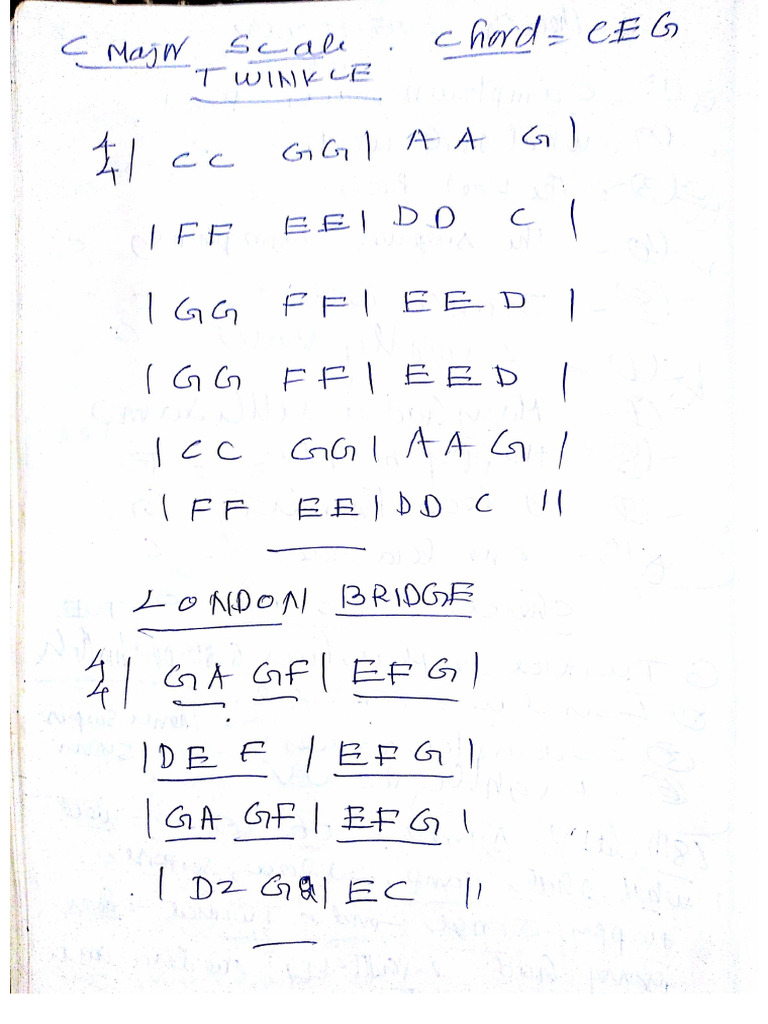 C Major Scale . Chord = CEG
TWINKLE
4/4 | CC GG | AA G |
| FF EE | DD C |
| GG FF | EE D |
| GG FF | EE D |
| CC GG | AA G |
| FF EE | DD C ||
LONDON BRIDGE
4/4 | GA GF | EFG |
| DE F | EFG |
| GA GF | EFG |
| D2 G2 | EC ||